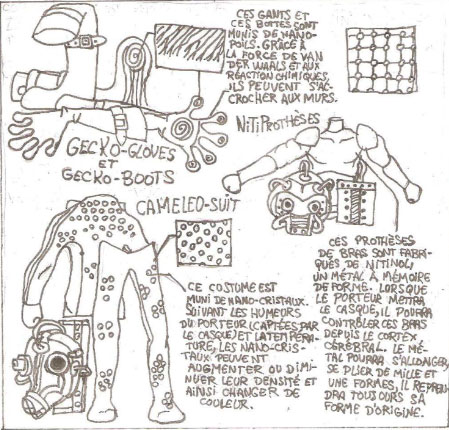 CES GANTS ET
CES BOTTES SONT
MUNIS DE NANO-
POILS. GRÂCE À
LA FORCE DE VAN
DER WAALS ET AUX
RÉACTION CHIMIQUES,
ILS PEUVENT S'AC-
CROCHER AUX MURS.
GECKO-GLOVES
ET
GECKO-BOOTS
NITIPROTHÈSES
CAMELEO-SUIT
CE COSTUME EST
MUNI DE NANO-CRISTAUX.
SUIVANT LES HUMEURS
DU PORTEUR (CAPTÉES PAR
LE CASQUE) ET LA TEMPÉRA-
TURE, LES NANO-CRIS-
TAUX PEUVENT
AUGMENTER OU DIMI-
NUER LEUR DENSITÉ ET
AINSI CHANGER DE
COULEUR.
CES PROTHÈSES
DE BRAS SONT FABRI-
QUÉS DE NITINOL:
UN MÉTAL À MÉMOIRE
DE FORME. LORSQUE
LE PORTEUR METTRA
LE CASQUE, IL POURRA
CONTRÔLER CES BRAS
DEPUIS LE CORTEX
CÉRÉBRAL. LE MÉ-
TAL POURRA S'ALLONGER,
SE PLIER DE MILLE ET
UNE FORMES, IL REPREN-
DRA TOUJOURS SA
FORME D'ORIGINE.